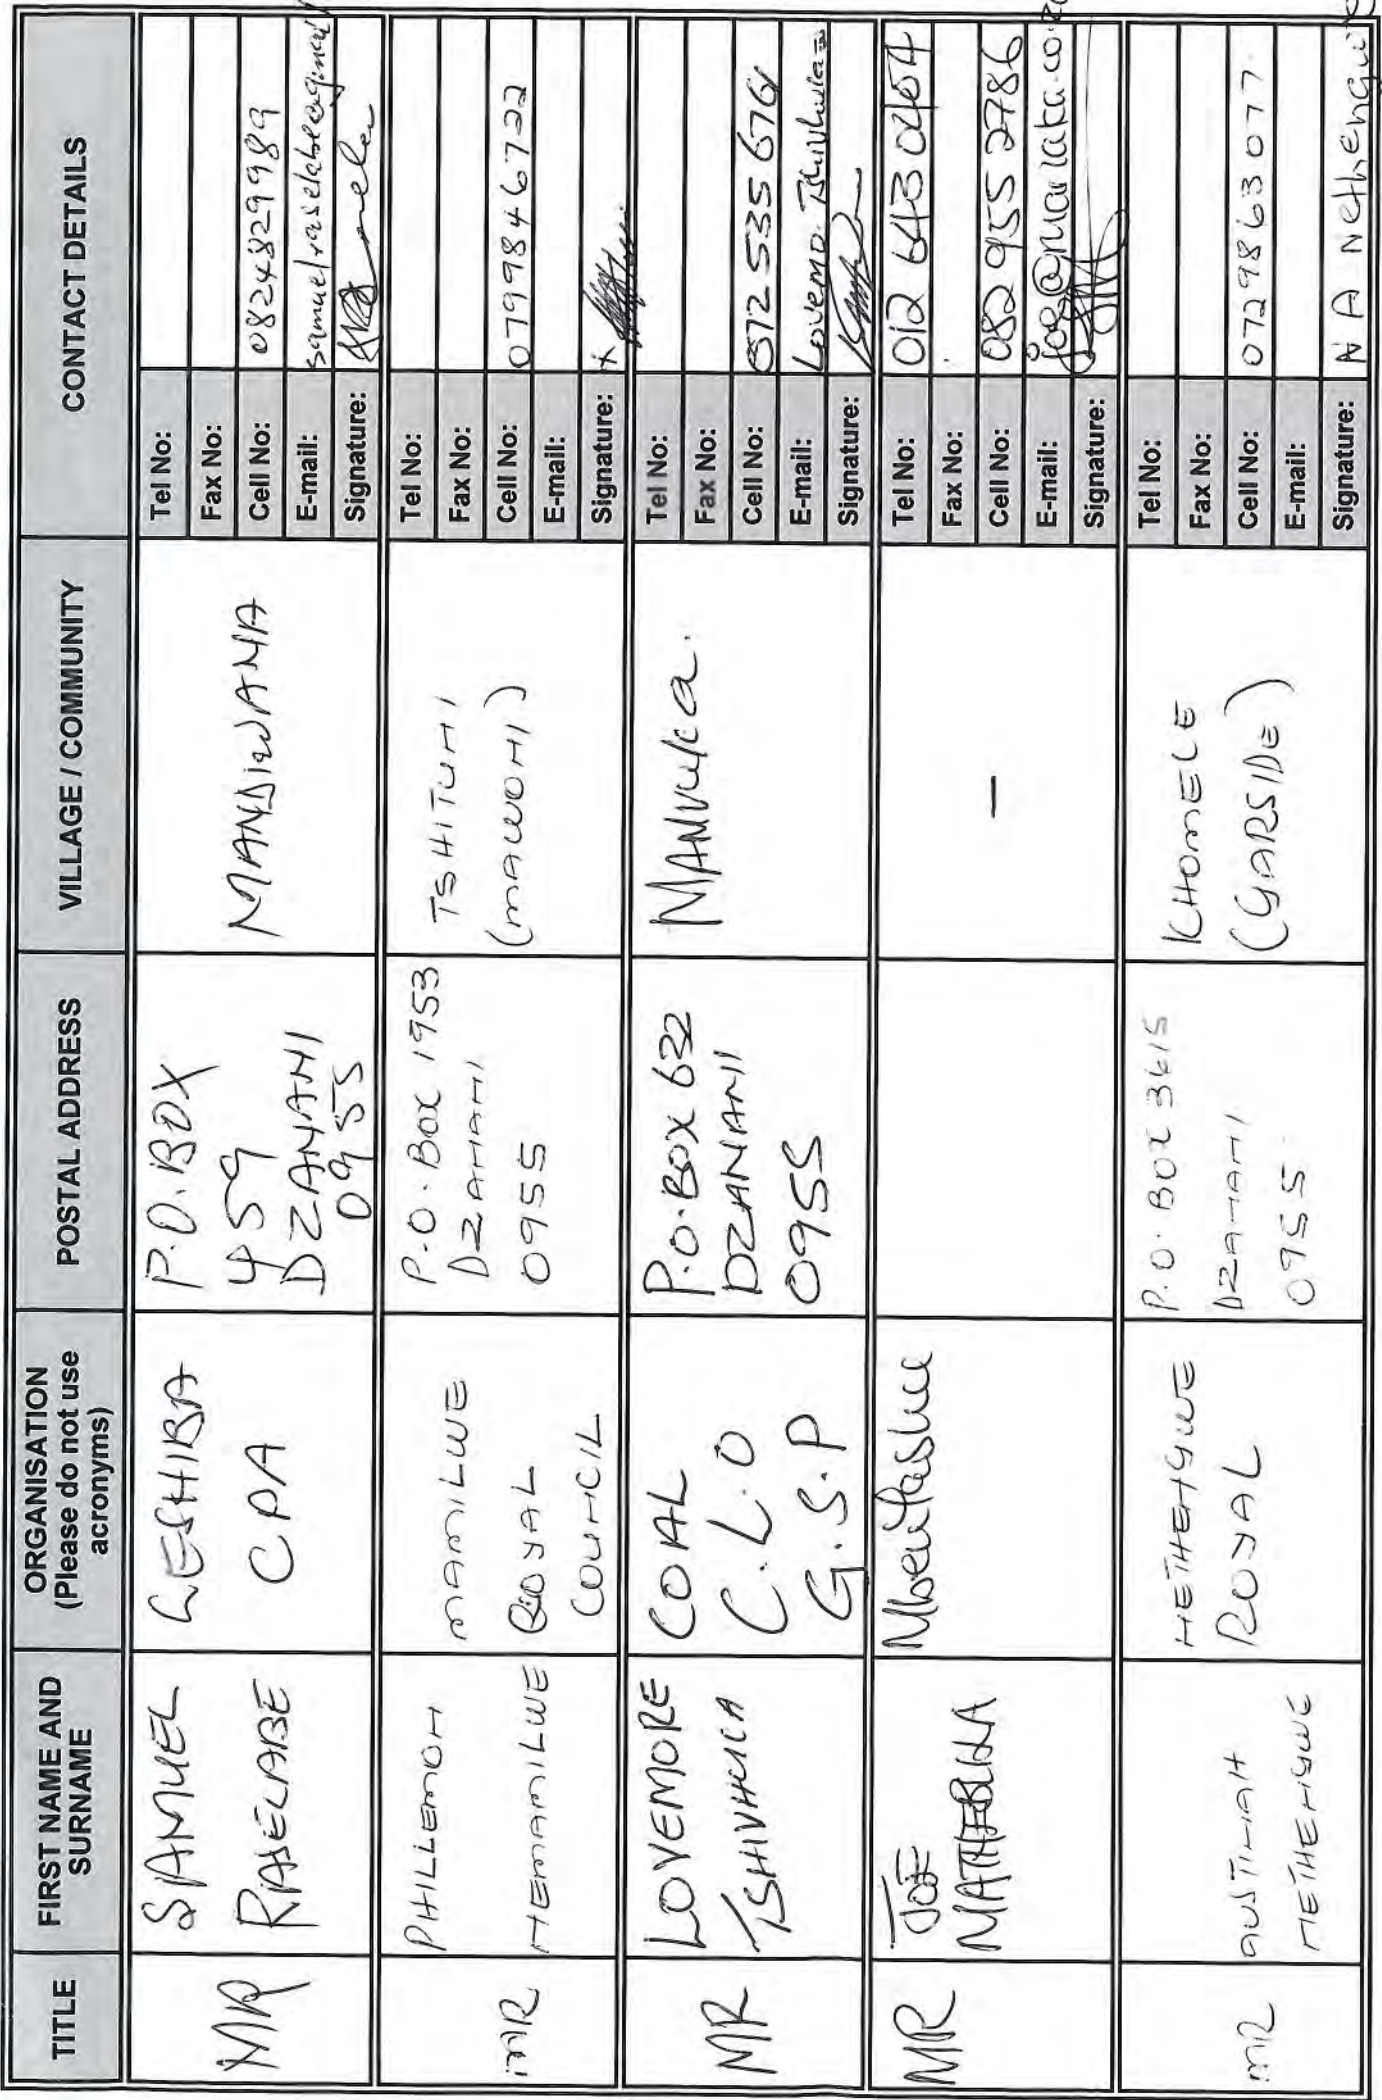 TITLE
FIRST NAME AND
SURNAME
ORGANISATION
(Please do not use
acronyms)
POSTAL ADDRESS
VILLAGE / COMMUNITY
CONTACT DETAILS
MR
SAMUEL
RASELABE
LESHIBA
CPA
P.O. BOX
459
DZANANI
0955
MANDIWANA
Tel No:
Fax No:
Cell No: 0824829989
E-mail:
Signature:
MR
PHILLEMON
NEMAMILWE
MAMILWE
ROYAL
COUNCIL
P.O. Box 1953
DZANANI
0955
TSHITUNI
(MAWONI)
Tel No:
Fax No:
Cell No: 0799846722
E-mail:
Signature:
MR
LOVEMORE
TSHIVHULA
COAL
C.L.O
G.S.P
P.O. BOX 622
DZANANI
0955
Manvuka.
Tel No:
Fax No:
Cell No: 072 535 6761
E-mail:
Signature:
MR
JOE
MATHEBULA
–
Tel No: 012 643 0404
Fax No:
Cell No: 082 955 2786
E-mail:
Signature:
MR
AUSTINAH
NETHENGWE
NETHENGWE
ROYAL
P.O. BOX 3615
DZANANI
0955
KHOMELE
(GARSIDE)
Tel No:
Fax No:
Cell No: 0729863077
E-mail:
Signature: N A Nethengwe